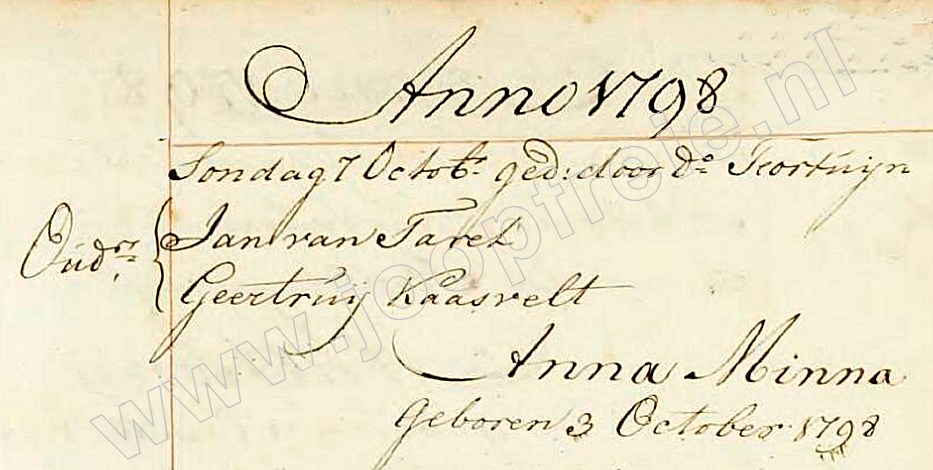 Anno 1798
Sondag 7 Octobr. ged: door Do. Fortuijn
Oudrs. { Jan van Tarel
Geertruij Kaasvelt
Anna Minna
geboren 3 October 1798
www.joopfreie.nl